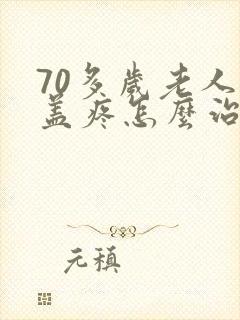 70多歲老人
蓋疼怎麼治
元稹